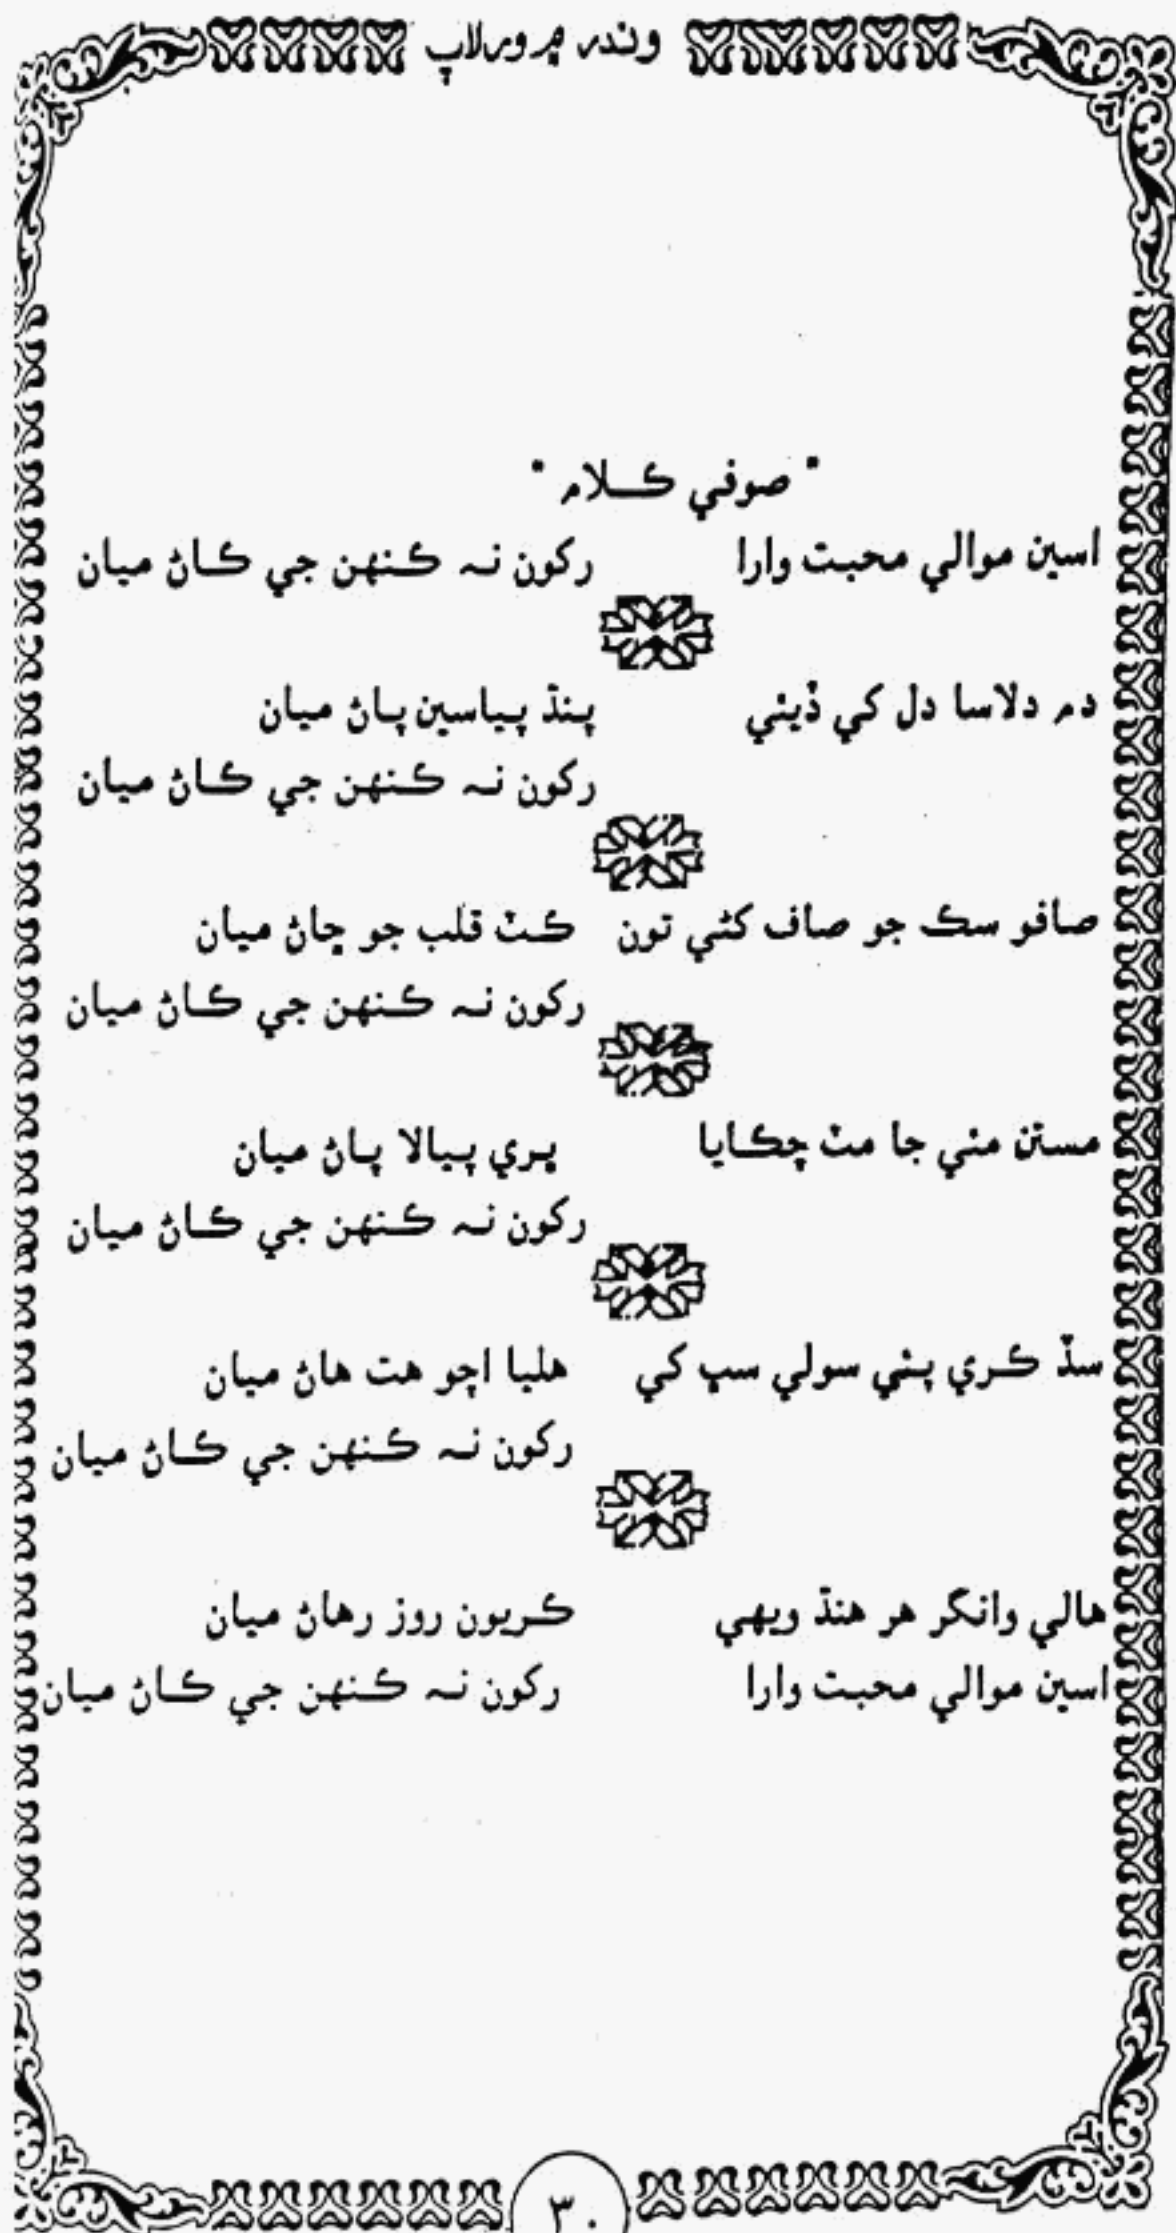 وندر ۾ ورلاپ
" صوفي ڪلام "
اسين موالي محبت وارا رکون نہ ڪنهن جي ڪاڻ ميان
دم دلاسا دل کي ڏيئي پنڌ پياسين پاڻ ميان
رکون نہ ڪنهن جي ڪاڻ ميان
صافو سڪ جو صاف کڻي تون ڪٽ قلب جو ڇاڻ ميان
رکون نہ ڪنهن جي ڪاڻ ميان
مستن مئي جا مٽ چکايا ڀري پيالا پاڻ ميان
رکون نہ ڪنهن جي ڪاڻ ميان
سڏ ڪري پئي سولي سڀ کي هليا اچو هت هاڻ ميان
رکون نہ ڪنهن جي ڪاڻ ميان
هالي وانگر هر هنڌ ويهي ڪريون روز رهاڻ ميان
اسين موالي محبت وارا رکون نہ ڪنهن جي ڪاڻ ميان
٣٠